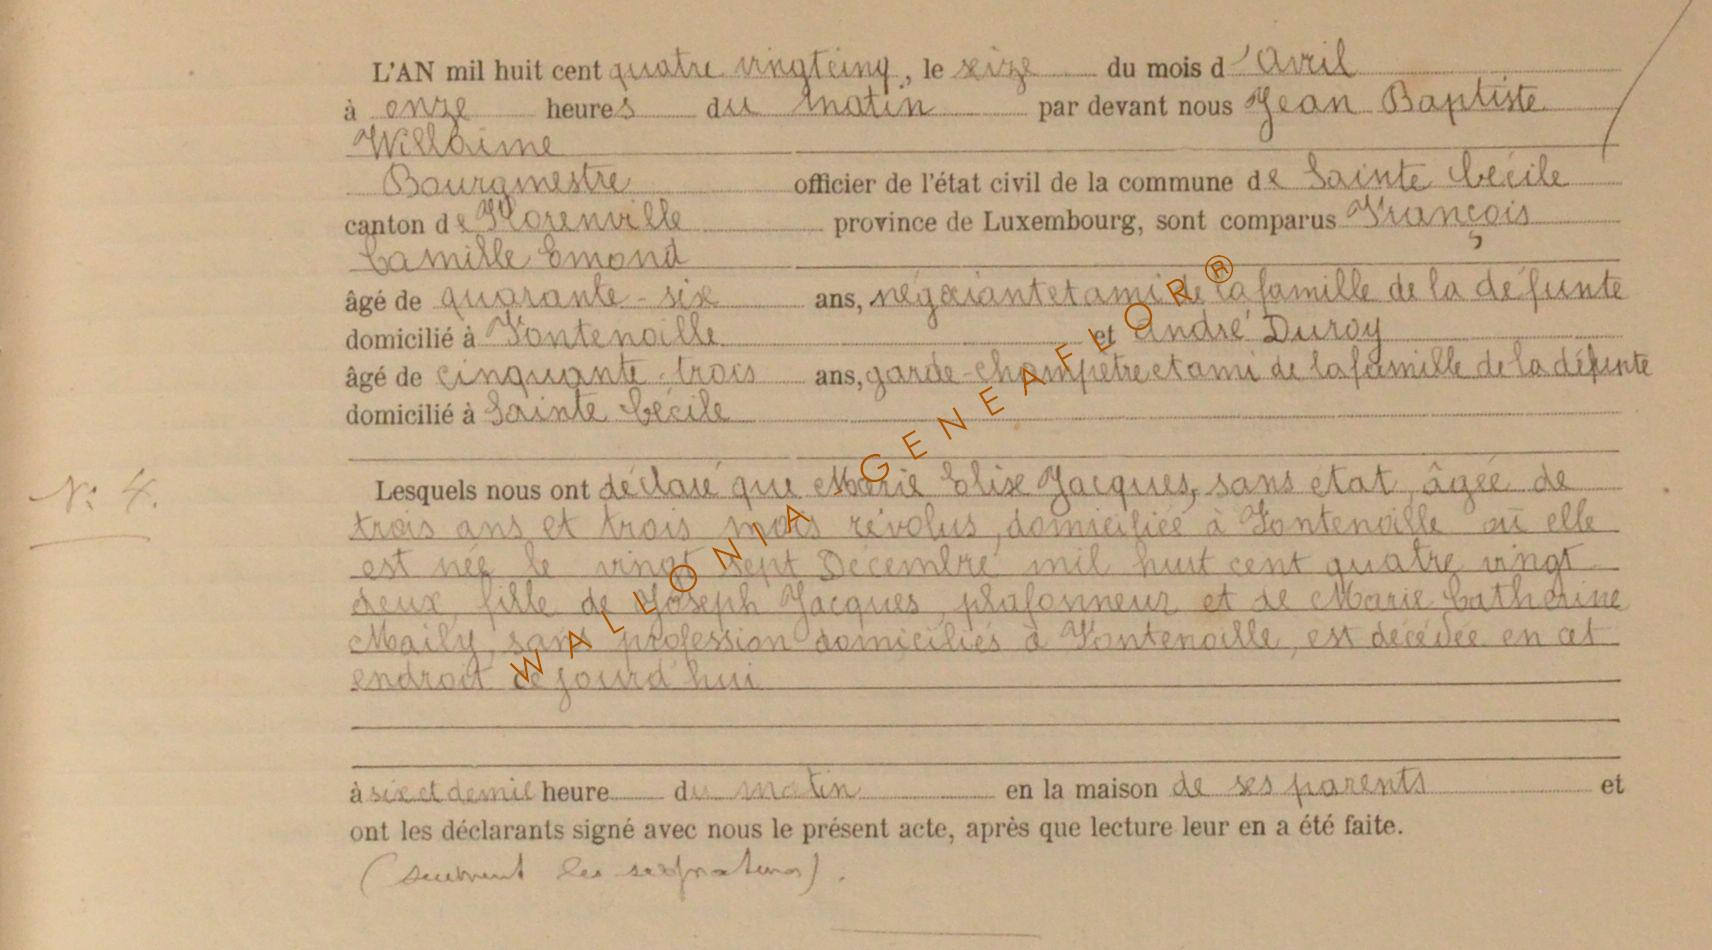 L'AN mil huit cent quatre vingt cinq, le seize du mois d'Avril
à onze heures du matin par devant nous Jean Baptiste
Willaime
Bourgmestre officier de l'état civil de la commune de Sainte Cécile
canton de Florenville province de Luxembourg, sont comparus François
Camille Emond
âgé de quarante-six ans, négociant et ami de la famille de la défunte
domicilié à Fontenoille et André Duroy
âgé de cinquante-trois ans, garde-champêtre et ami de la famille de la défunte
domicilié à Sainte Cécile
N: 4.
Lesquels nous ont déclaré que Marie Elise Jacques, sans état, âgée de
trois ans et trois mois révolus, domiciliée à Fontenoille où elle
est née le vingt sept Décembre mil huit cent quatre vingt
deux, fille de Joseph Jacques, plafonneur et de Marie Catherine
Maily, sans profession domiciliés à Fontenoille, est décédée en cet
endroit ce jourd'hui
à six et demie heure du matin en la maison de ses parents et
ont les déclarants signé avec nous le présent acte, après que lecture leur en a été faite.
(suivent les signatures).
WALLONIA GENEAFLOR®